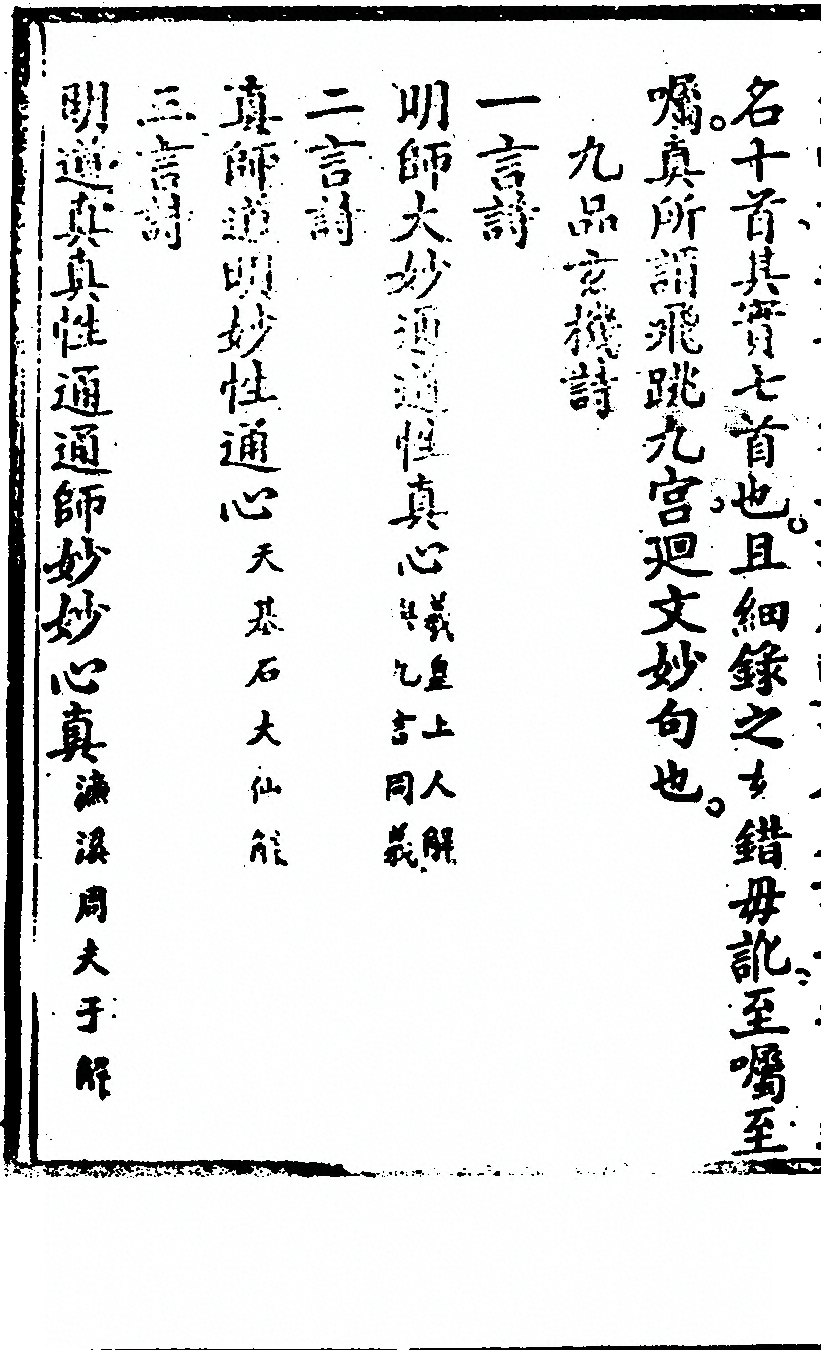 名十首其實七首也。且細錄之女錯毋訛。至囑至
囑。真所謂飛跳九宮。廻文妙句也。
九品玄機詩
一言詩
明師大妙通道性真心
羲皇上人解
與九言同義
二言詩
真師道明妙性通心 天基石大仙解
三言詩
明道真真性通通師妙妙心真 濂溪周夫子解